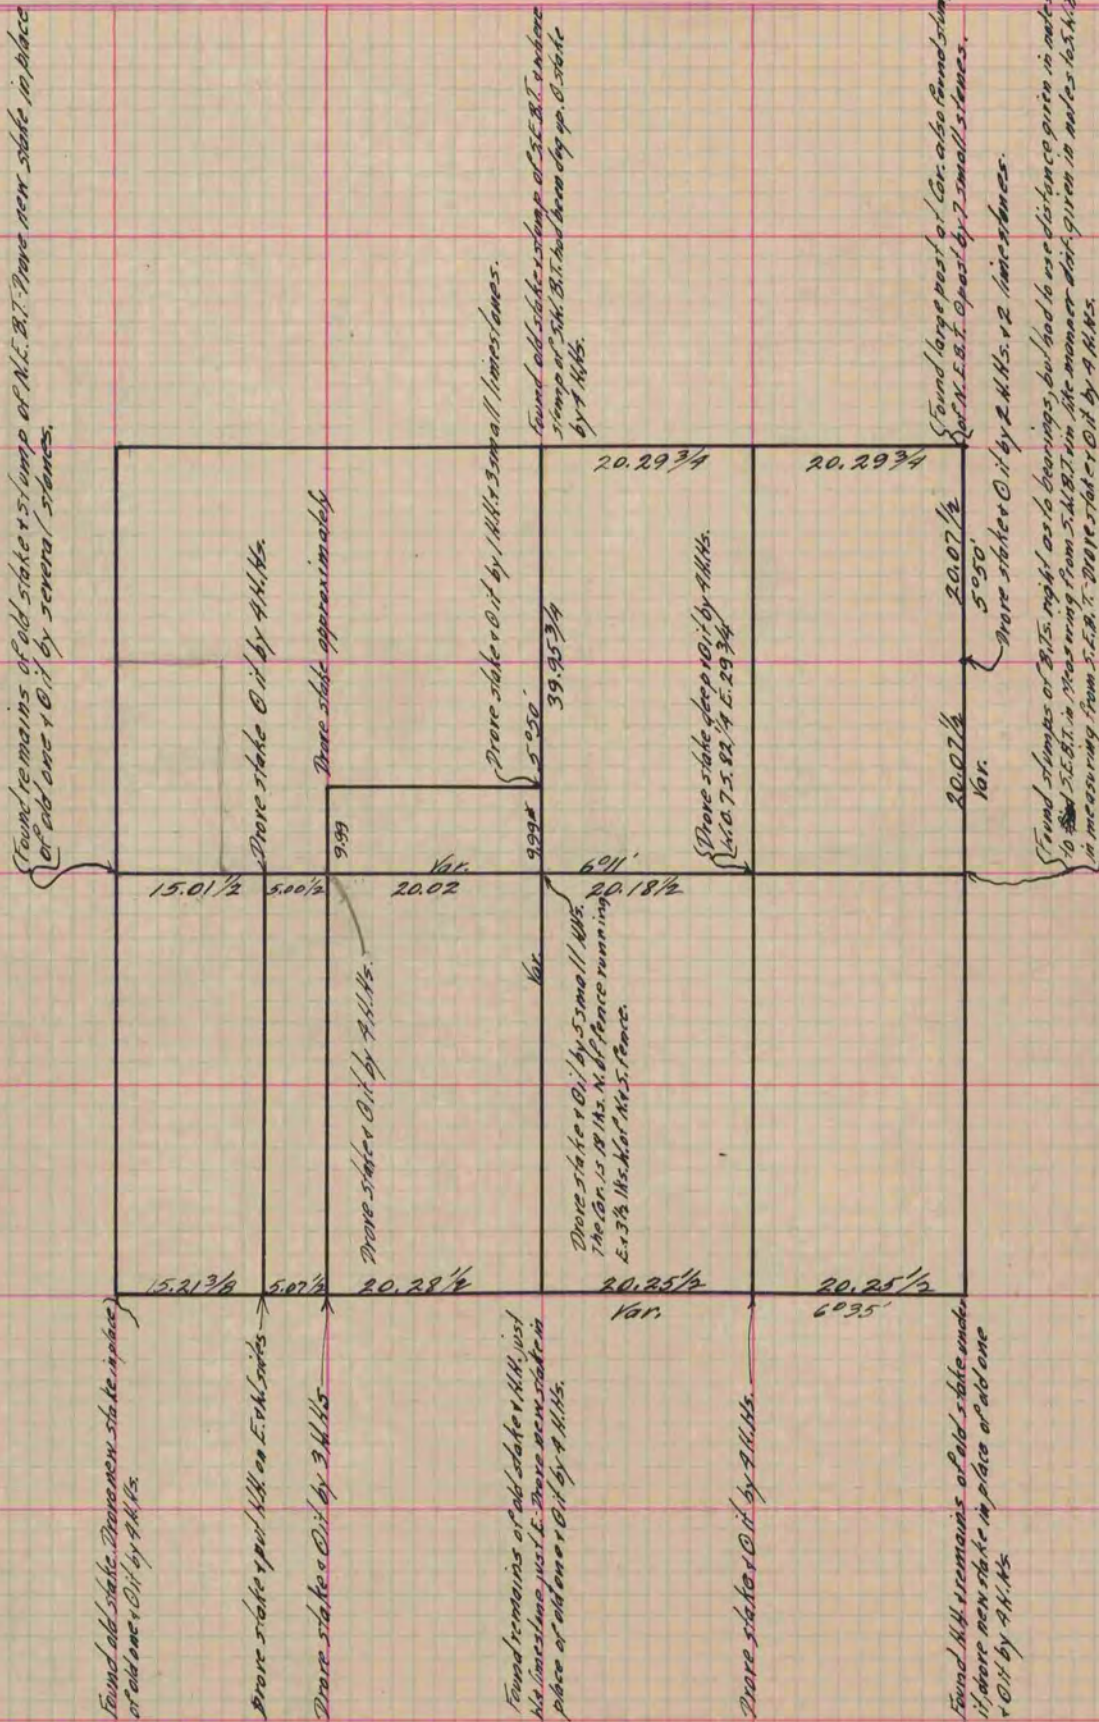 Found remains of old stake & stump of N.E.B.T. Drove new stake in place
of old one & ⊙ it by several stones.
Drove stake ⊙ it by 4 H.Hs.
Drove stake approximately
Drove stake & ⊙ it by 1 H.H. & 3 small limestones.
Found old stake & stump of S.E.B.T. & where
stump of S.W. B.T. had been dug up. ⊙ stake
by 4 H.Hs.
Found large post at Cor. also found stump
of N.E.B.T. ⊙ post by 7 small stones.
Drove stake & ⊙ it by 2 H.Hs. & 2 limestones.
Found stumps of B.Ts. right as to bearings, but had to use distance given in notes
to S.E.B.T. in measuring from S.W.B.T. & in like manner dist. given in notes to S.W.B.T.
in measuring from S.E.B.T. Drove stake & ⊙ it by 4 H.Hs.
20.29 3/4
20.29 3/4
20.07 1/2
5°50'
20.07 1/2
Var.
39.95 3/4
5°50'
9.99
9.99
Drove stake deep & ⊙ it by 4 H.Hs.
15.01 1/2
5.00 1/2
Var.
20.02
6°11'
20.18 1/2
Var.
Drove stake & ⊙ it by 4 H.Hs.
Drove stake & ⊙ it by 5 small H.Hs.
The Cor. is 18 lks. N. of fence running
E. & 3 1/2 lks. W. of N. & S. fence.
15.21 3/8
5.07 1/2
20.28 1/2
20.25 1/2
Var.
20.25 1/2
6°35'
Found old stake. Drove new stake in place
of old one & ⊙ it by 4 H.Hs.
Drove stake & put H.H. on E. & W. sides
Drove stake & ⊙ it by 3 H.Hs
Found remains of old stake & H.H. just
W. & limestone just E. Drove new stake in
place of old one & ⊙ it by 4 H.Hs.
Drove stake & ⊙ it by 4 H.Hs.
Found H.H. & remains of old stake under
it, drove new stake in place of old one
& ⊙ it by 4 H.Hs.